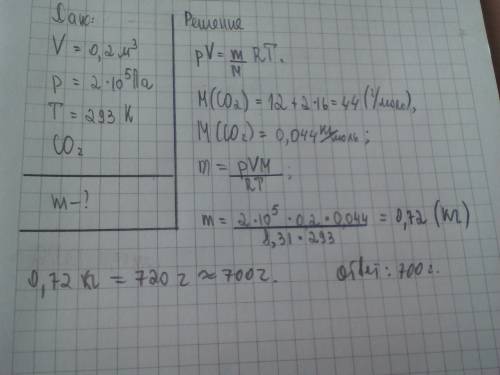 Дано:
V = 0,2 м³
p = 2·10⁵ Па
T = 293 К
CO₂
m - ?
Решение
pV = m/M RT.
M(CO₂) = 12 + 2·16 = 44 (г/моль),
M(CO₂) = 0,044 кг/моль;
m = pVM/RT;
m = 2·10⁵·0,2·0,044/8,31·293 = 0,72 (кг)
0,72 кг = 720 г ≈ 700 г.
Ответ: 700 г.